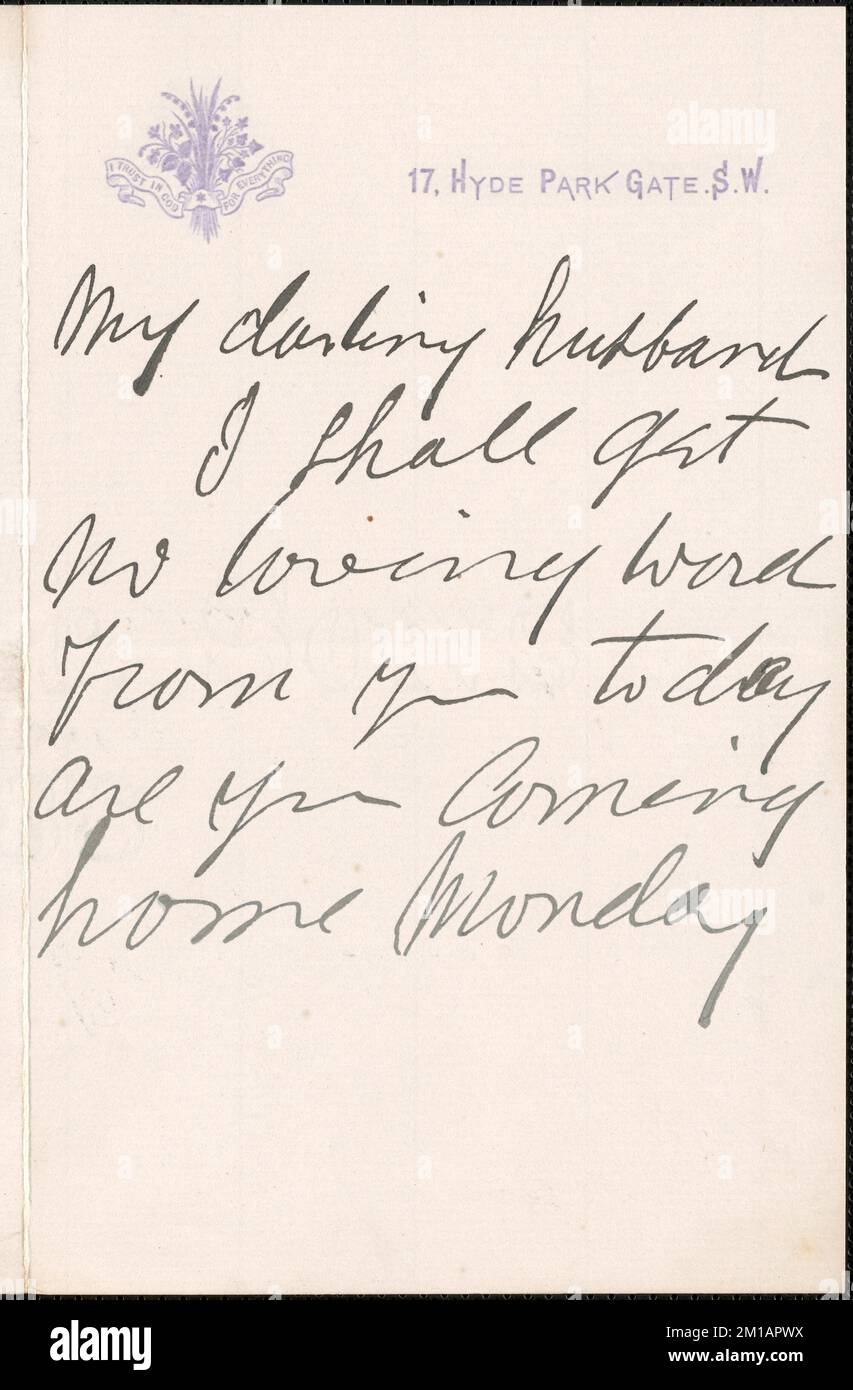 I TRUST IN GOD FOR EVERYTHING
17, HYDE PARK GATE. S.W.
My darling husband
I shall get
no loving word
from you today
are you coming
home Monday
alamy
Image ID: 2M1APWX
www.alamy.com